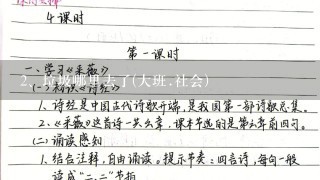 4课时
第一课时
一、学习《采薇》
2、垃圾哪里去了(大班.社会)
(一)初识《诗经》
1.诗经是中国古代诗歌开端,是我国第一部诗歌总集。
2.《采薇》这首诗一共六章,课本节选的是第六章前四句。
(二)诵读感知
1.结合注释,自由诵读。提示节奏:四言诗,每句一般
读成"二、二"节拍